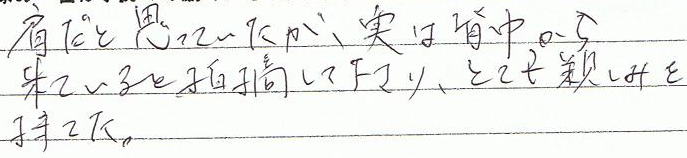 肩だと思っていたが、実は背中から
来ていると指摘して下さり、とても親しみを
持てた。